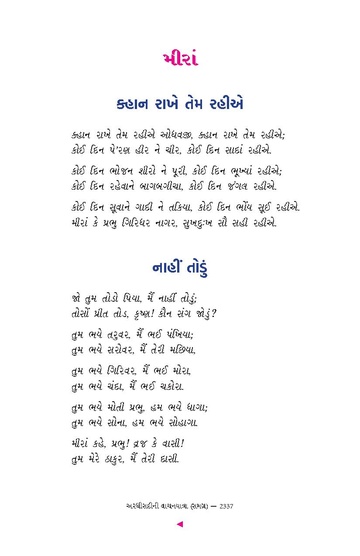 મીરાં
ક્હાન રાખે તેમ રહીએ
ક્હાન રાખે તેમ રહીએ ઓધવજી, ક્હાન રાખે તેમ રહીએ;
કોઈ દિન પે’રણ હીર ને ચીર, કોઈ દિન સાદાં રહીએ.
કોઈ દિન ભોજન શીરો ને પૂરી, કોઈ દિન ભૂખ્યાં રહીએ;
કોઈ દિન રહેવાને બાગબગીચા, કોઈ દિન જંગલ રહીએ.
કોઈ દિન સૂવાને ગાદી ને તકિયા, કોઈ દિન ભોંય સૂઈ રહીએ.
મીરાં કે પ્રભુ ગિરિધર નાગર, સુખદુ:ખ સૌ સહી રહીએ.
નાહીં તોડું
જો તુમ તોડો પિયા, મૈં નાહીં તોડું;
તોસોં પ્રીત તોડ, કૃષ્ણ! કૌન સંગ જોડું?
તુમ ભયે તરુવર, મૈં ભઈ પંખિયા;
તુમ ભયે સરોવર, મૈં તેરી મછિયા,
તુમ ભયે ગિરિવર, મૈં ભઈ મોરા,
તુમ ભયે ચંદા, મૈં ભઈ ચકોરા.
તુમ ભયે મોતી પ્રભુ, હમ ભયે ધાગા;
તુમ ભયે સોના, હમ ભયે સોહાગા.
મીરાં કહે, પ્રભુ! વ્રજ કે વાસી!
તુમ મેરે ઠાકુર, મૈં તેરી દાસી.
અરધીસદીની વાચનયાત્રા (સમગ્ર) — 2337